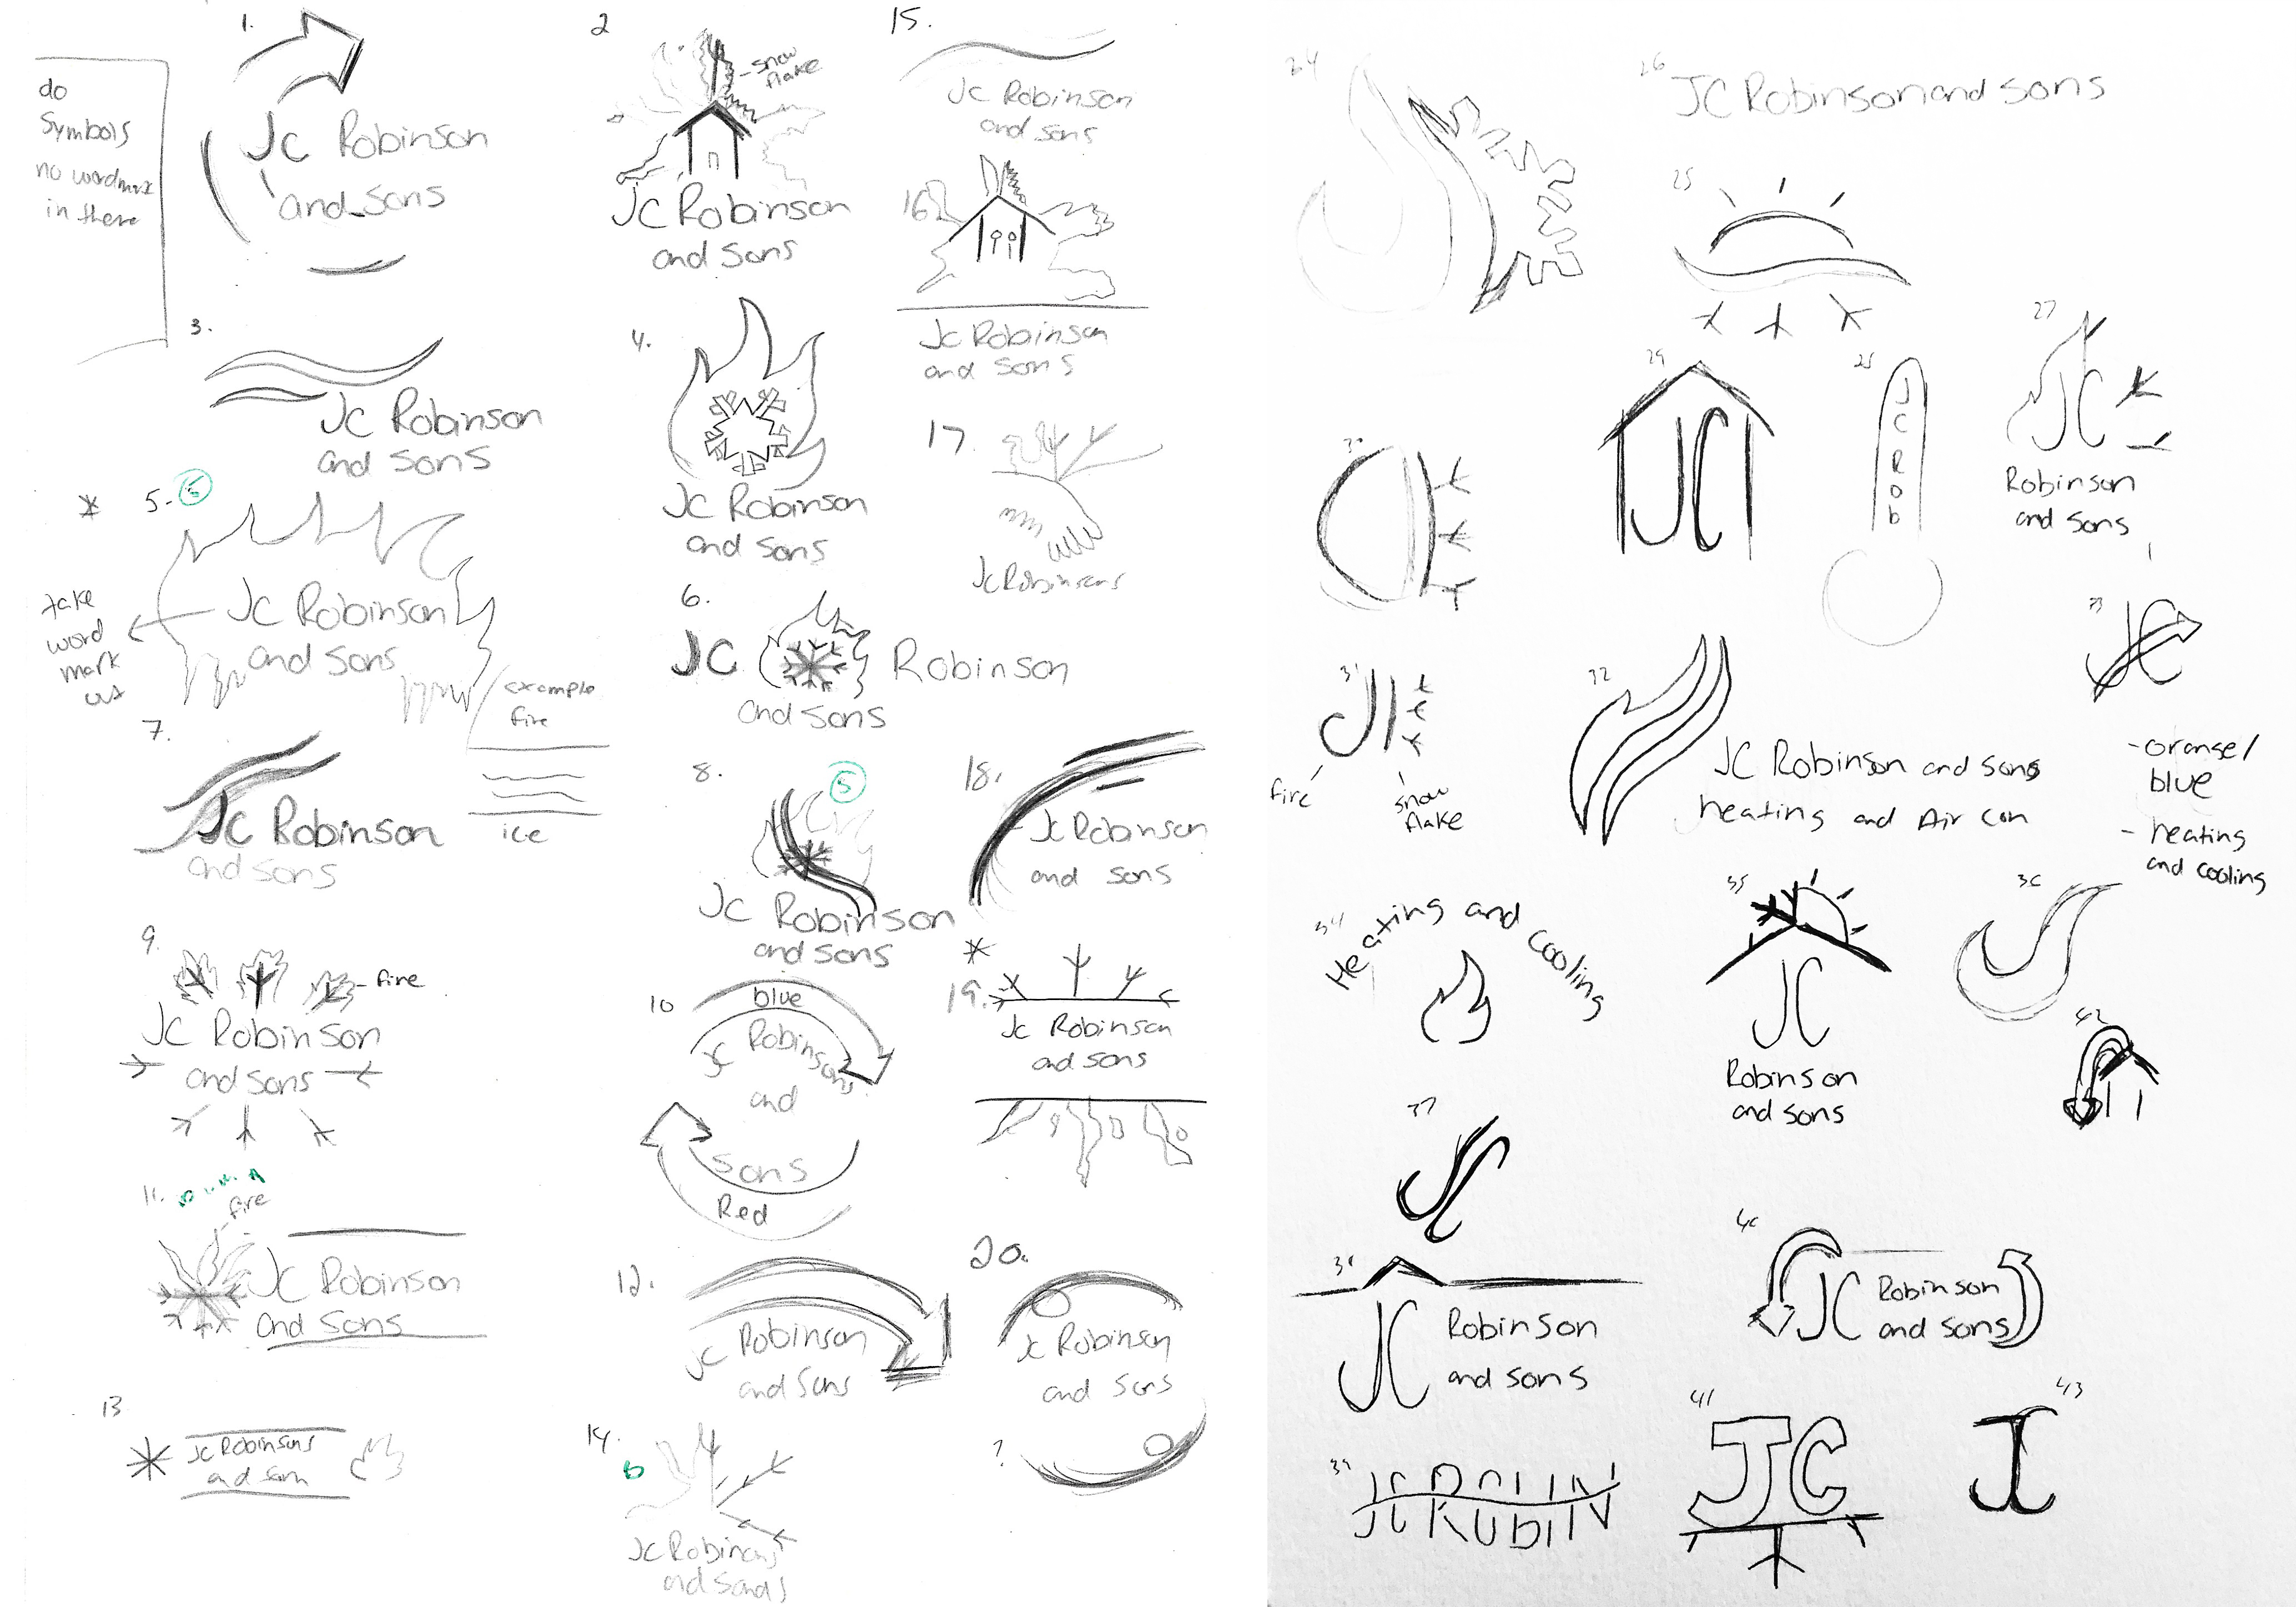 do
Symbols
no wordmark
in there
1.
JC Robinson
and Sons
2
snow
flake
JC Robinson
and Sons
15.
JC Robinson
and Sons
16
JC Robinson
and Sons
3.
JC Robinson
and Sons
4.
JC Robinson
and Sons
17.
JC Robinsons
5. 5
JC Robinson
and Sons
take
word
mark
out
example
fire
ice
6.
JC Robinson
and Sons
7.
JC Robinson
and Sons
8. 5
JC Robinson
and Sons
18.
JC Robinson
and Sons
9.
fire
JC Robinson
and Sons
10
blue
JC Robinsons
and
Sons
Red
19.
JC Robinson
and Sons
11.
fire
JC Robinson
and Sons
12.
JC Robinson
and Sons
20.
JC Robinson
and Sons
?
13
JC Robinsons
and Son
14.
b
JC Robinsons
24
26
JC Robinson and Sons
25
27
JC
Robinson
and Sons
29
JC
JCRob
31
fire
snow
flake
32
JC Robinson and Sons
heating and Air Con
-orange/
blue
- heating
and cooling
34
Heating and cooling
35
JC
Robinson
and Sons
36
42
37
JC
Robinson
and Sons
40
JC Robinson
and Sons
39
JC Robin
41
JC
43